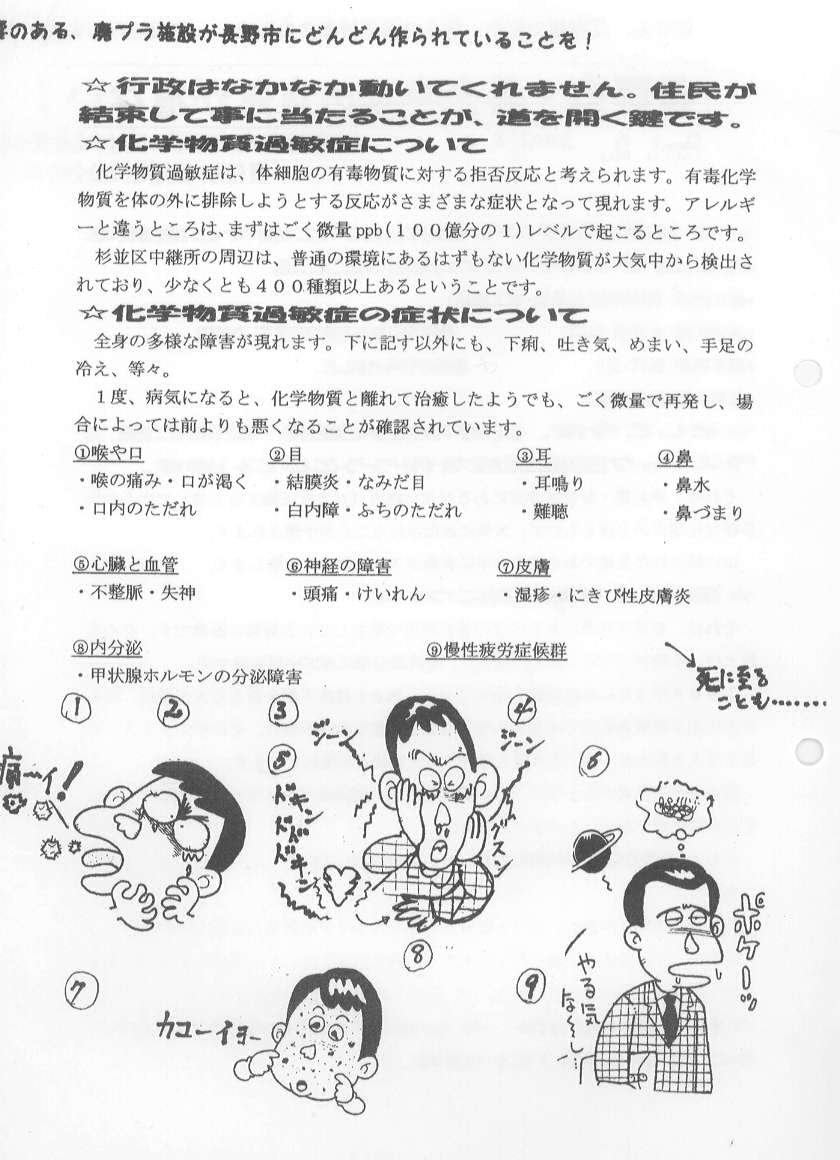 のある、廃プラ施設が長野市にどんどん作られていることを!
☆行政はなかなか動いてくれません。住民が
結束して事に当たることが、道を開く鍵です。
☆化学物質過敏症について
化学物質過敏症は、体細胞の有毒物質に対する拒否反応と考えられます。有毒化学
物質を体の外に排除しようとする反応がさまざまな症状となって現れます。アレルギ
ーと違うところは、まずはごく微量 ppb(100億分の1)レベルで起こるところです。
杉並区中継所の周辺は、普通の環境にあるはずもない化学物質が大気中から検出さ
れており、少なくとも400種類以上あるということです。
☆化学物質過敏症の症状について
全身の多様な障害が現れます。下に記す以外にも、下痢、吐き気、めまい、手足の
冷え、等々。
1度、病気になると、化学物質と離れて治癒したようでも、ごく微量で再発し、場
合によっては前よりも悪くなることが確認されています。
①喉や口 ②目 ③耳 ④鼻
・喉の痛み・口が渇く ・結膜炎・なみだ目 ・耳鳴り ・鼻水
・口内のただれ ・白内障・ふちのただれ ・難聴 ・鼻づまり
⑤心臓と血管 ⑥神経の障害 ⑦皮膚
・不整脈・失神 ・頭痛・けいれん ・湿疹・にきび性皮膚炎
⑧内分泌 ⑨慢性疲労症候群
・甲状腺ホルモンの分泌障害
死に至る
ことも………
① ② ③ ④
ジーン
ジーン
痛ーイ!
⑤
⑥
ドキン
ドドド
ドキン
グスン
ポケーッ
⑧
⑦
⑨
やる気
な~し
カユーイヨー